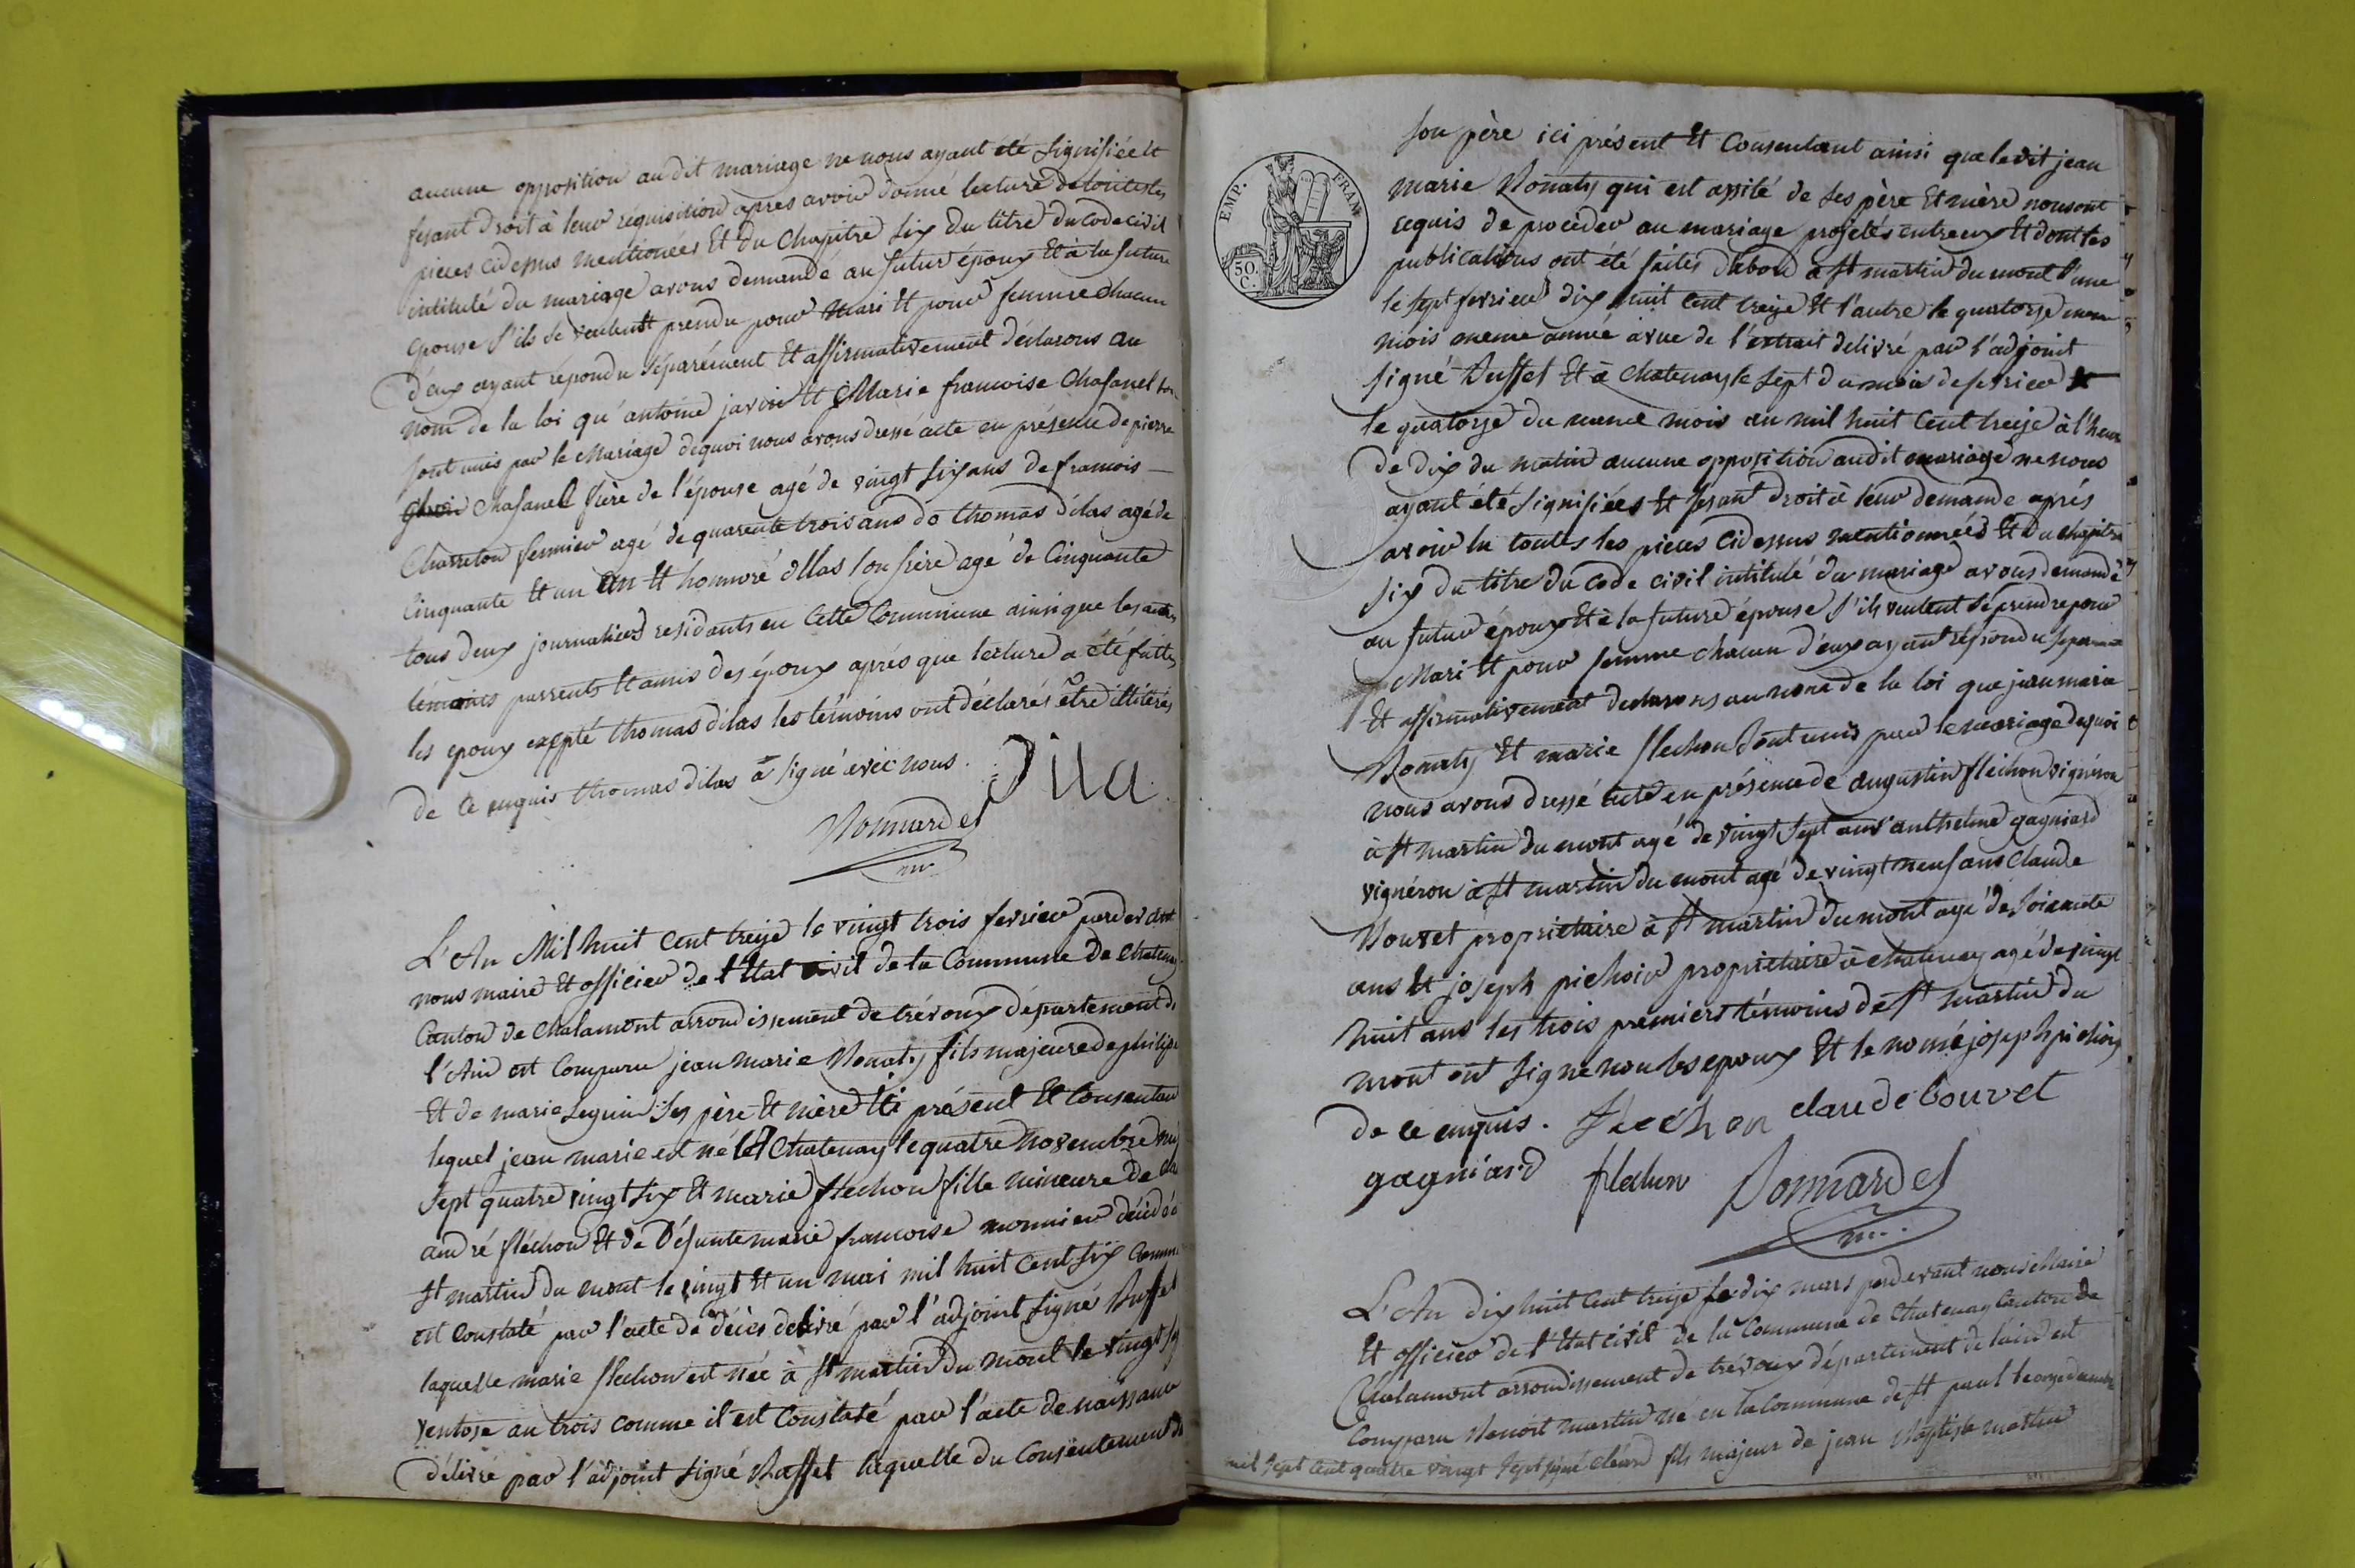 aucune opposition audit mariage ne nous ayant été signifiée et
fesant droit à leur réquisition apres avoir donné lecture de toutes les
pieces cidessus mentionées Et du Chapitre Six du titre du code civil
intitulé du mariage avons demandé au futur époux Et à la future
epouse s'ils se veulent prendre pour Mari Et pour femme chacun
d'eux ayant répondu séparément Et affirmativement déclarons au
nom de la loi qu'antoine Et Marie francoise Chasanel
sont unis par le Mariage dequoi nous avons dressé acte en présence de pierre
Chasanel frère de l'épouse agé de vingt six ans de francois
Charreton fermier agé de quarente trois ans do thomas dilas agé de
Cinquante Et un an Et honnoré dilas son frère agé de Cinquante
tous deux journaliers residants en Cette Commune ainsi que les autres
témoins parrents Et amis des époux après que lecture a été faitte
les epoux excepté thomas dilas les témoins ont déclarés être illitérés
de ce enquis thomas dilas a signé avec nous. Dila
Nonnardel
L'An Mil huit Cent treize le vingt trois fevrier pardevant
nous maire Et officier de l'Etat civil de la Commune de Chatenay
Canton de Chalamont arrondissement de trévoux département de
l'Ain est Comparu jean marie Vonaty fils majeure de philipe
Et de marie Seguin Ses père Et mère ici présent Et Consentant
lequel jean marie est né à Chatenay le quatre Novembre mil
Sept quatre vingt six Et marie flechon fille mineure de
andré flechon Et de Défunte marie francoise monnier décédée
St martin du mont le vingt Et un mai mil huit Cent Six Comme
est Constaté par l'acte de décès delivré par l'adjoint signé Buffet
laquelle marie flechon est née à St martin du mont le vingt
ventose an trois comme il est Constaté par l'acte de naissance
délivré par l'adjoint signé Buffet laquelle du Consentement de
EMP. FRAN.
50. C.
son père ici présent Et Consentant ainsi que ledit jean
marie Vonaty qui est assité de ses père Et mère nous ont
requis de proceder au mariage projetés entreeux Et dont les
publications ont été faites dabord à St martin du mont l'une
le sept fevrier dix huit Cent treize Et l'autre le quatorze meme
mois meme année a vue de l'extrait delivré par l'adjoint
signé Buffet Et à Chatenay le Sept du mois de fevrier Et
le quatorze du meme mois an mil huit Cent treize à l'heure
de dix du matin aucune opposition audit mariage ne nous
ayant été signifiées Et fesant droit à leur demande après
avoir lu toutes les pieces Cidessus mentionnées Et du chapitre
six du titre du Code civil intitulé du mariage avons demandé
au futur époux Et à la future épouse s'ils veulent se prendre pour
Mari Et pour femme chacun d'eux ayant répondu séparement
Et affirmativement declarons au nom de la loi que jean marie
Vonaty Et marie flechon Sont unis par le mariage dequoi
nous avons dressé acte en présence de augustin flechon vignéron
à St martin du mont agé de vingt Sept ans anthelme gagniard
vignéron à St martin du mont agé de vingt neuf ans Claude
Bouvet propriétaire à St martin du mont agé de Soixante
ans Et joseph pichoir propriétaire à chatenay agé de vingt
huit ans les trois premiers témoins de St martin du
mont ont signé non les epoux Et le nomé joseph pichoir
de ce enquis. flechon claude bouvet
gagniard flechon Nonnardel
L'An dix huit Cent treize le dix mars pardevant nous Maire
Et officier de l'Etat civil de la Commune de Chatenay Canton de
Chalamont arrondissement de trévoux département de lain est
Comparu Benoit martin né en la Commune de St paul
mil sept cent quatre vingt sept signé fils majeur de jean Baptiste martin